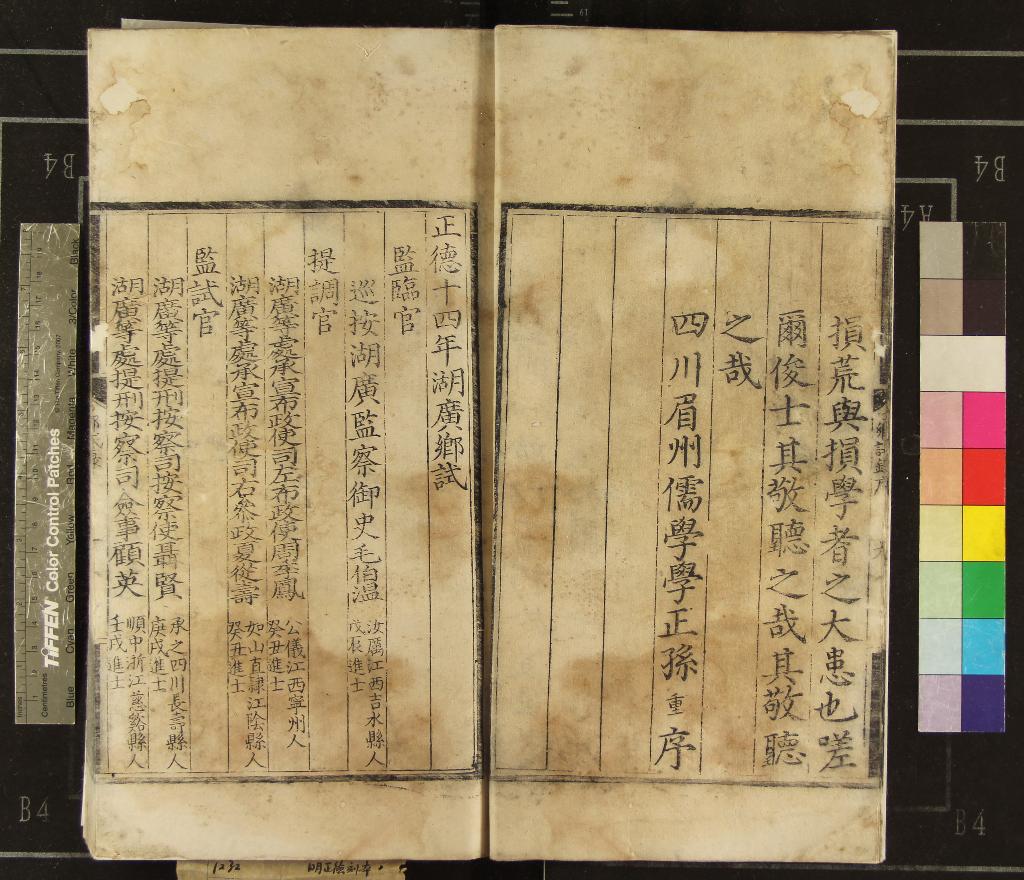 損荒與損學者之大患也嗟
爾俊士其敬聽之哉其敬聽
之哉
四川眉州儒學學正孫重序
正德十四年湖廣鄉試
監臨官
巡按湖廣監察御史毛伯溫
汝厲江西吉水縣人
戊辰進士
提調官
湖廣等處承宣布政使司左布政使周季鳳
公儀江西寧州人
癸丑進士
湖廣等處承宣布政使司右參政夏從壽
如山直隸江陰縣人
癸丑進士
監試官
湖廣等處提刑按察司按察使聶賢
承之四川長壽縣人
庚戌進士
湖廣等處提刑按察司僉事顧英
順中浙江慈谿縣人
壬戌進士
B4
B4
A4
B4
B4
TIFFEN Color Control Patches
Blue
Cyan
Green
Yellow
Red
Magenta
White
3/Color
Black
Centimetres
Inches
明正德刻本